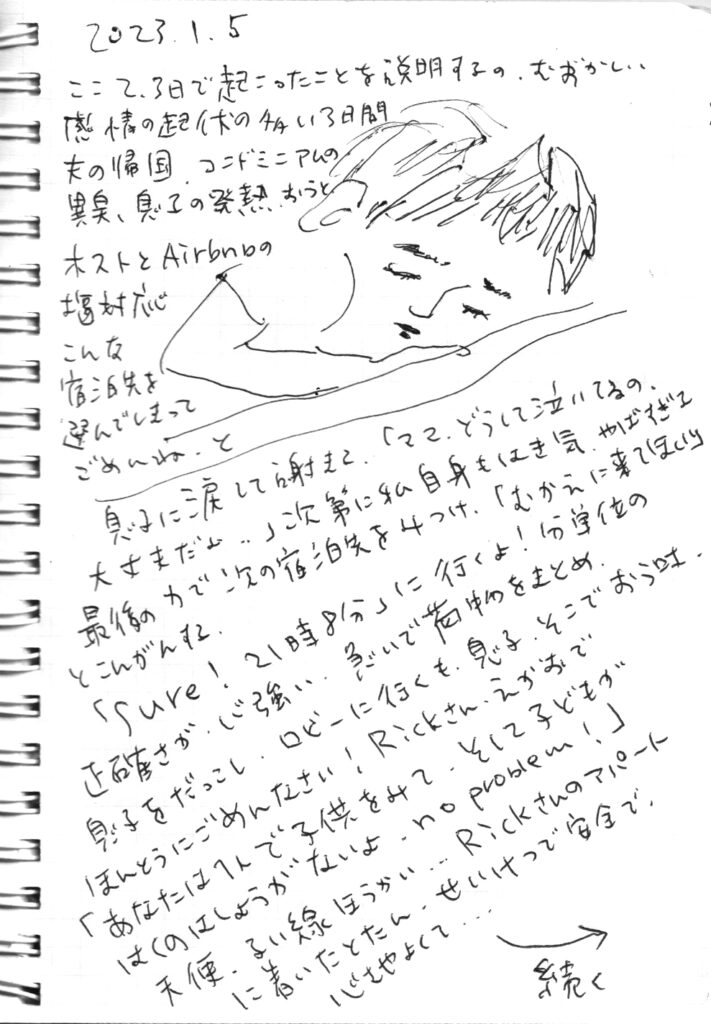 2023.1.5
ここ2、3日で起こったことを説明するの、むずかしい
感情の起伏の多い3日間
夫の帰国、コンドミニアムの
異臭、息子の発熱、おうと
ホストとAirbnbの
塩対応
こんな
宿泊先を
選んでしまって
ごめんね、と
息子に涙して謝ると、「ママ、どうして泣いてるの、
大丈夫だよ…」次第に私自身もはき気、やばすぎて
最後の力で次の宿泊先を見つけ、「むかえに来てほしい」
とこんがんする
「Sure! 21時8分」に行くよ!分単位の
正確さが、心強い、急いで荷物をまとめ、
息子をだっこし、ロビーに行くも、息子、そこでおう吐、
ほんとうにごめんなさい!Rickさん、えがおで
「あなたは1人で子供をみて、そして子どもが
はくのはしょうがないよ、no problem!」
天使、るい線ほうかい…Rickさんのアパート
に着いたとたん、せいけつで安全で、
心地よくて…
続く